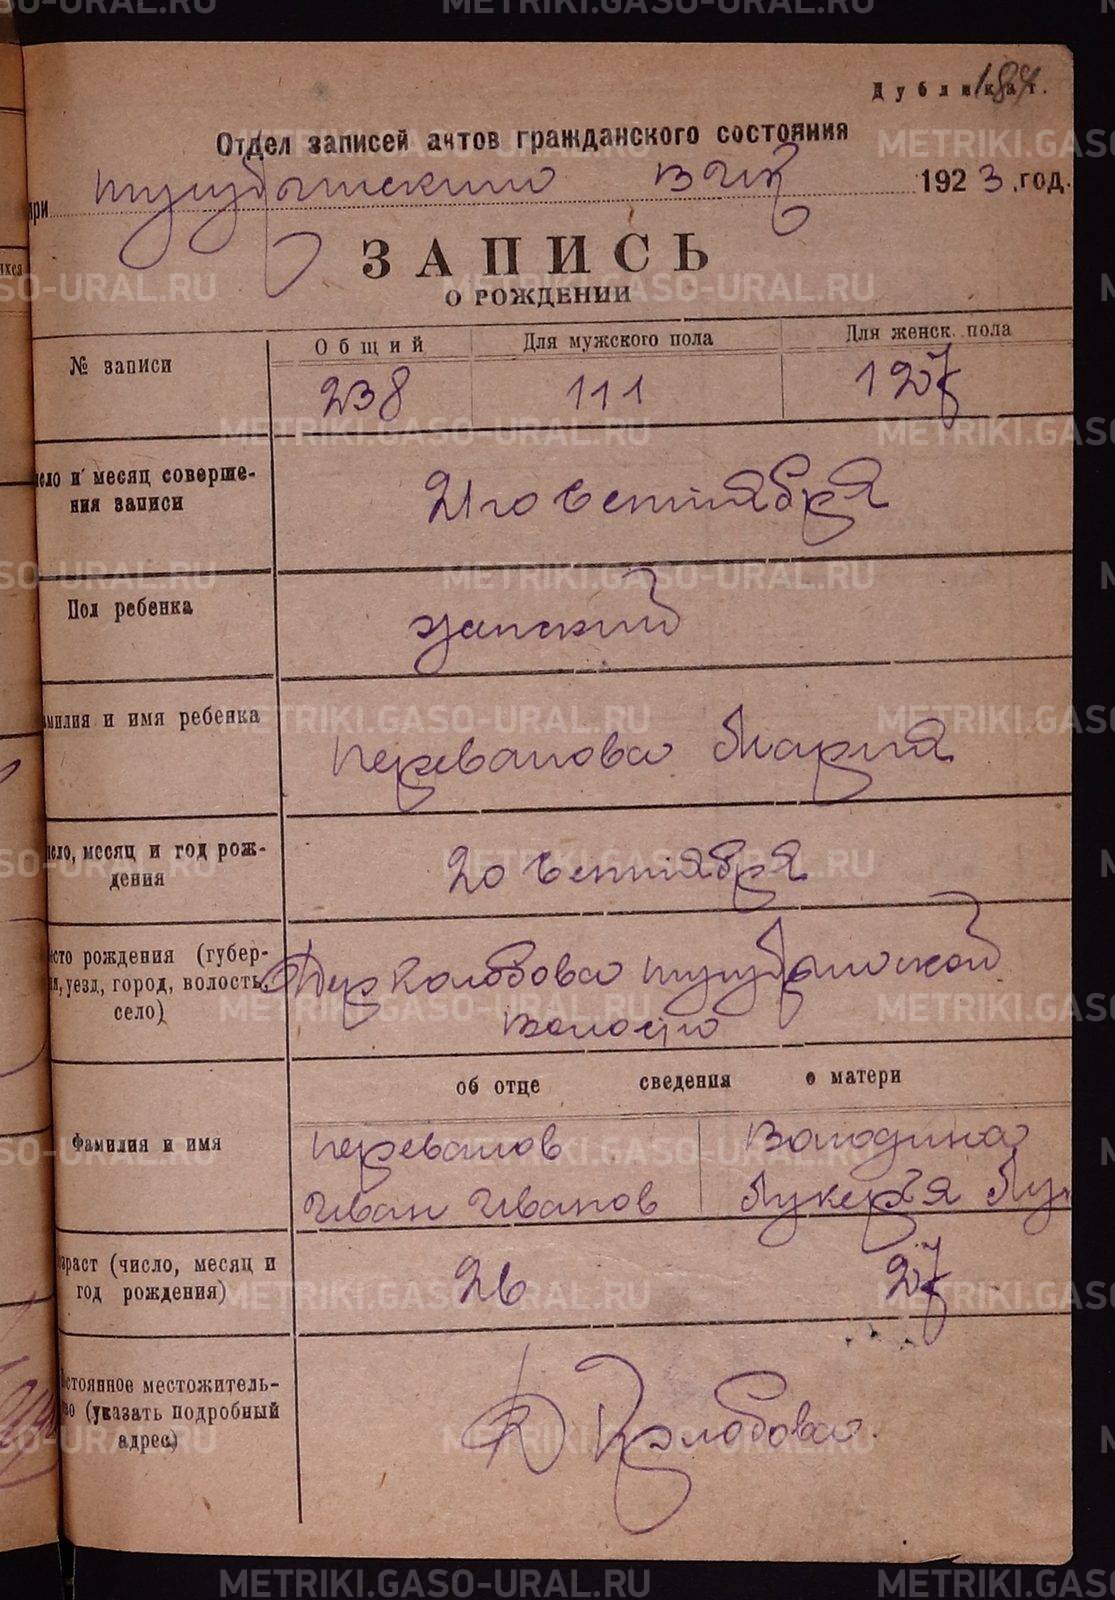 Дубликат.
187
Отдел записей актов гражданского состояния
при Тугулымском ВИК 1923 год.
ЗАПИСЬ
О РОЖДЕНИИ
№ записи
Общий
Для мужского пола
Для женск. пола
238
111
127
сло и месяц соверше-
ния записи
21го Сентября
Пол ребенка
женский
амилия и имя ребенка
Перевалова Мария
сло, месяц и год рож-
дения
20 Сентября
сто рождения (губер-
я, уезд, город, волость,
село)
Дер Колобова
волости
об отце сведения о матери
Фамилия и имя
Перевалов
Володина
Иван Иванов
Лукерья Лу
зраст (число, месяц и
год рождения)
26
27
стоянное местожитель-
во (указать подробный
адрес)
Д Колобова.
METRIKI.GASO-URAL.RU